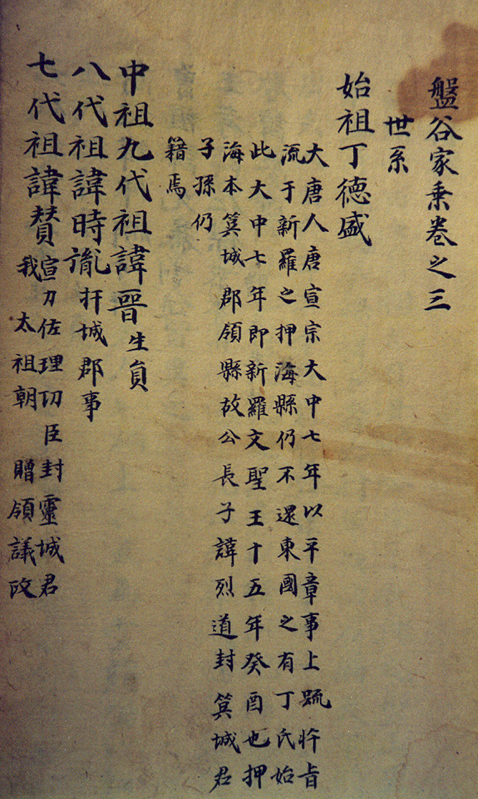 盤谷家乗卷之三
世系
始祖丁德盛
大唐人唐宣宗大中七年以平章事上疏忤旨
流于新羅之押海縣仍不還東國之有丁氏始
此大中七年即新羅文聖王十五年癸酉也押
海本箕城郡領縣故公長子諱烈道封箕城君
子孫仍
籍焉
中祖九代祖諱晉生員
八代祖諱時胤扞城郡事
七代祖諱贊宣力佐理功臣封靈城君
我太祖朝贈領議政